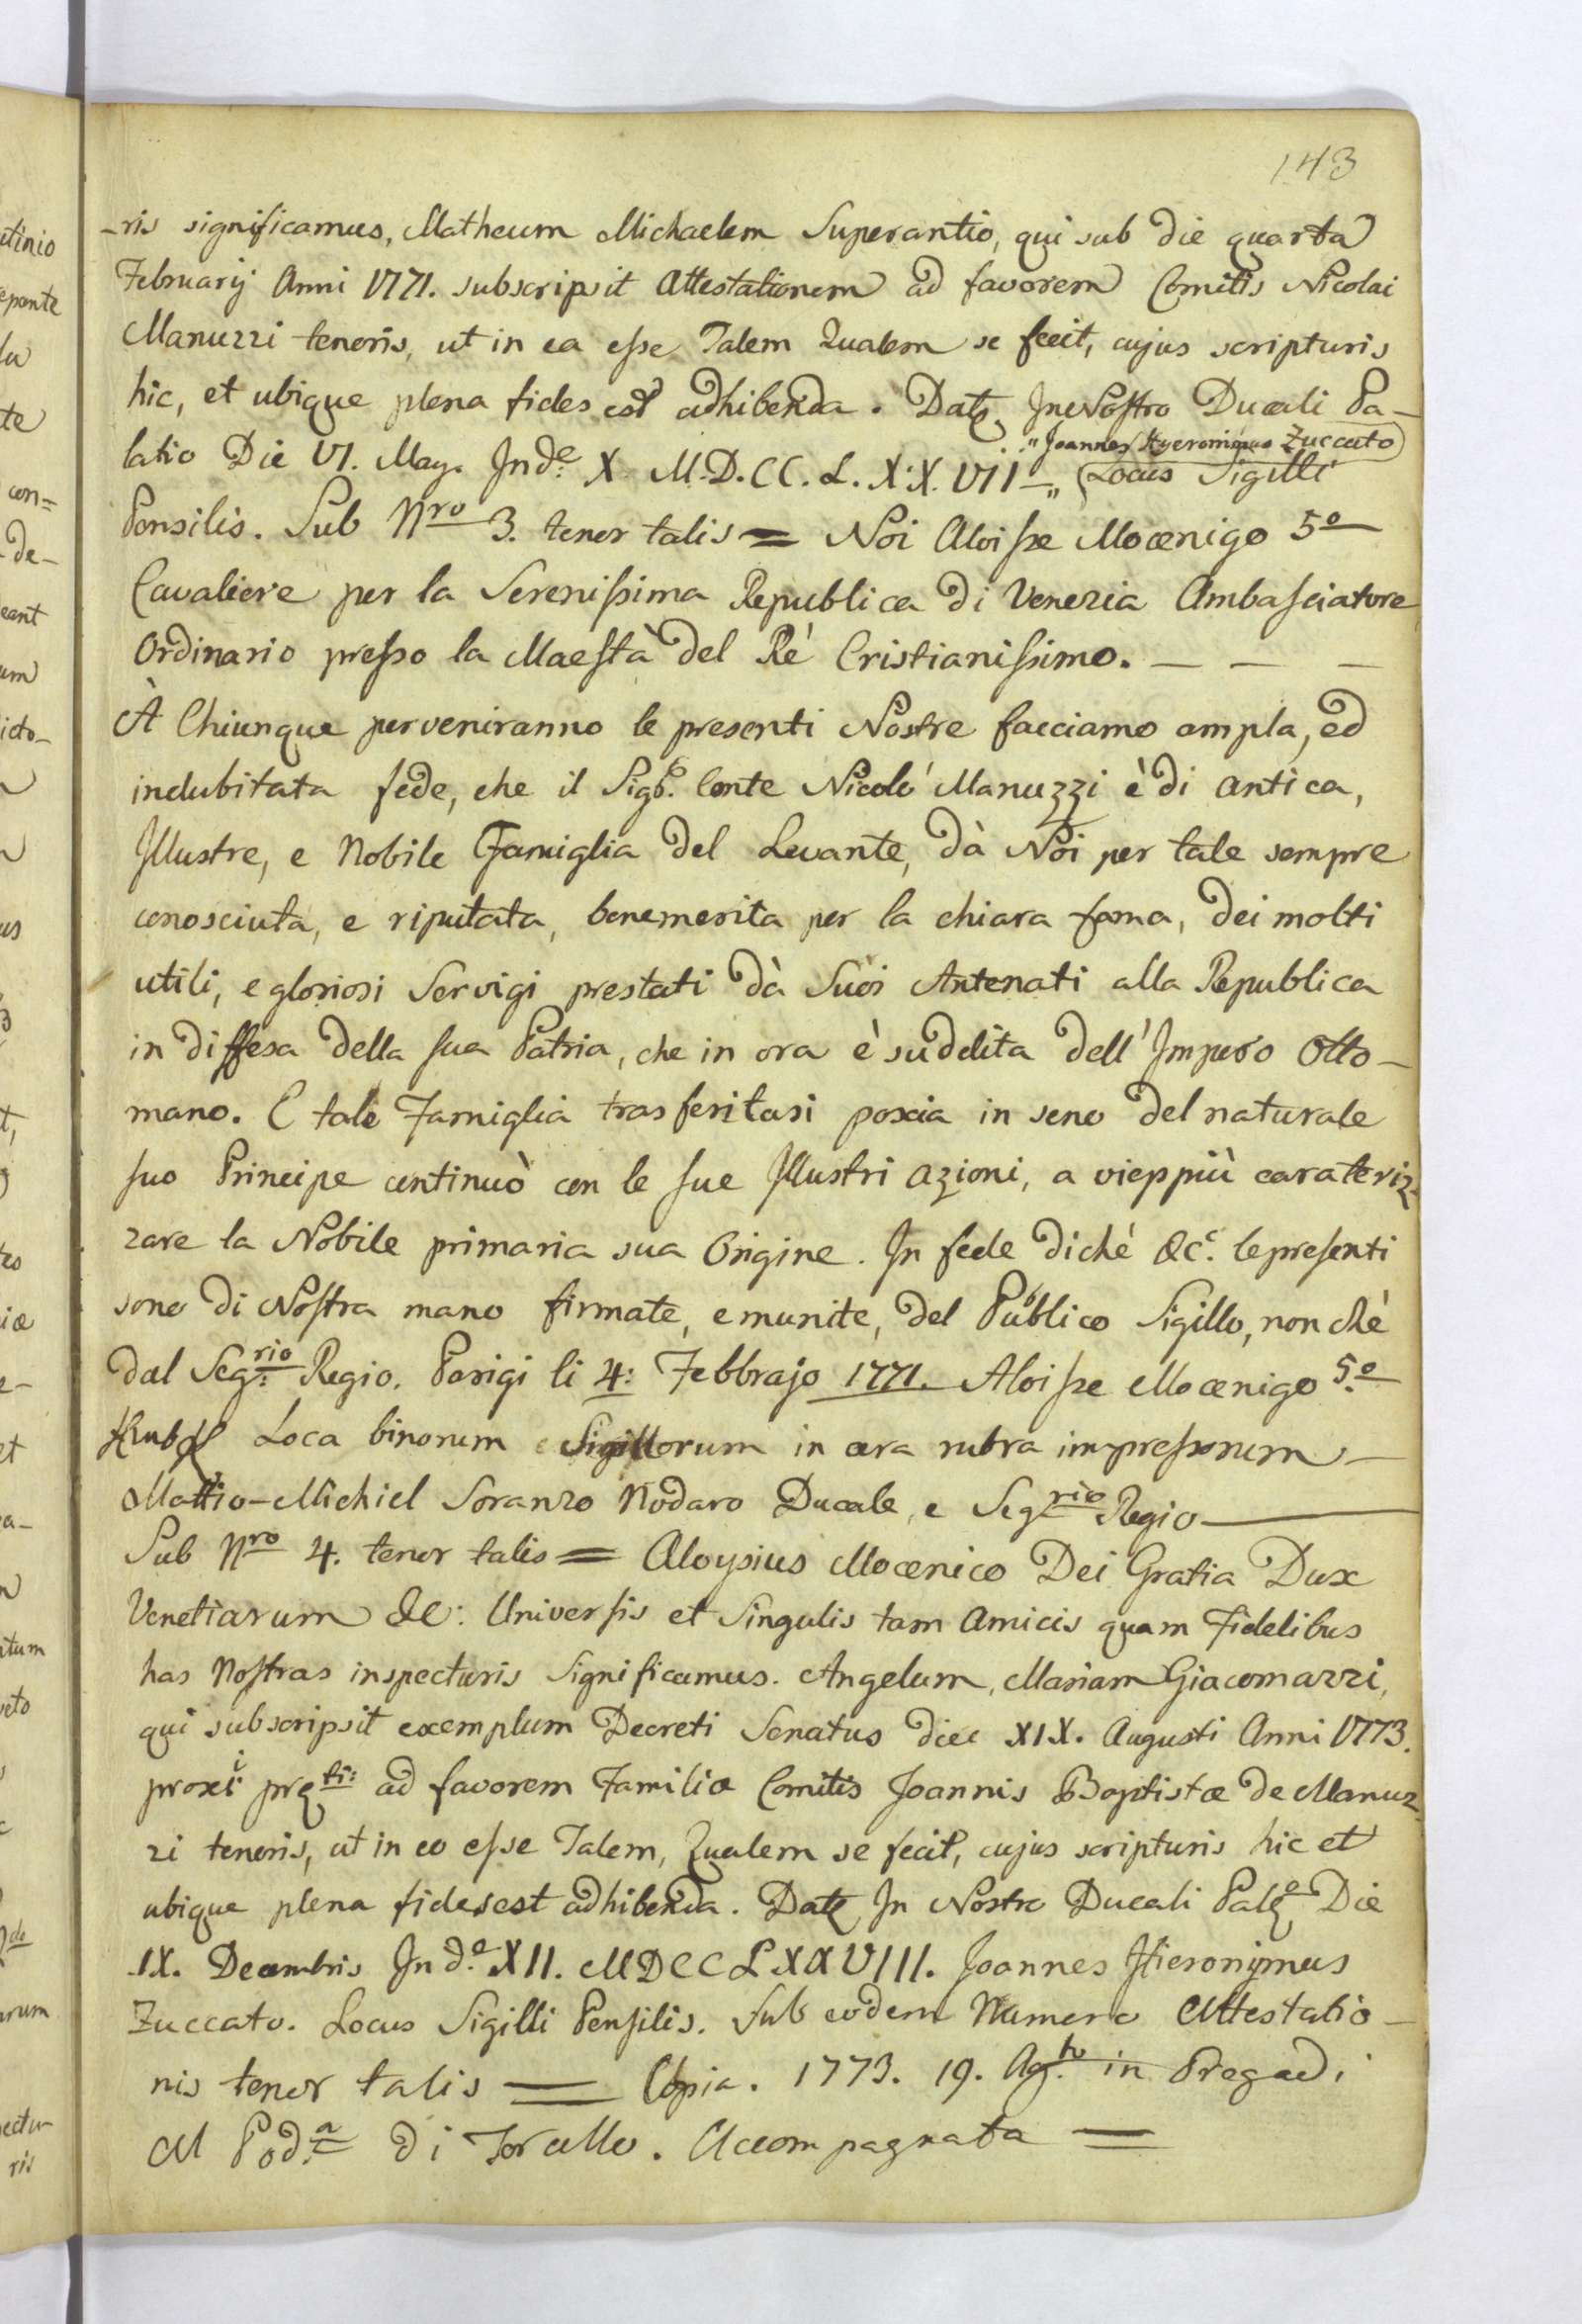 143
-ris significamus, Matheum Michaelem Superantio, qui sub die quarta
Februarij Anni 1771. subscripsit Attestationem ad favorem Comitis Nicolai
Manuzzi tenoris, ut in ea eſse Talem Qualem se fecit, cujus scripturis
hic, et ubique plena fides est adhibenda. Datȩ In Noſtro Ducali Pa-
„Joannes Hyeronimus Zuccato
latio Die VI. May. Indᵉ. X M.D.CC.L.X.X.VII„ Locus Sigilli
Pensilis. Sub Nro 3. tenor talis = Noi Aloiſse Mocenigo 5º
Cavaliere per la Sereniſsima Republica di Venezia Ambaſciatore
Ordinario preſso la Maeſtà del Rè Cristianiſsimo. — — —
À Chiunque perveniranno le presenti Nostre facciamo ampla, ed
indubitata fede, che il Sigʳ. Conte Nicolò Manuzzi è di antica,
Illustre, e Nobile Famiglia del Levante, dà Noi per tale sempre
conosciuta, e riputata, benemerita per la chiara fama, dei molti
utili, e gloriosi Servigi prestati dà Suoi Antenati alla Republica
in diffesa della ſua Patria, che in ora è suddita dell'Impero Otto-
mano. E tale Famiglia trasferitasi poscia in seno del naturale
ſuo Principe continuò con le ſue Illustri azioni, a vieppiù carateriz-
zare la Nobile primaria sua Origine. In fede dichè &cᵉ. lepreſenti
sono di Noſtra mano firmate, e munite, del Publico Sigillo, non chè
dal Seg:rio Regio. Parigi li 4: Febbrajo 1771. Aloiſse Mocenigo 5.º
Loca binorum Sigillorum in cera rubra impreſsorum —
Mattio-Michiel Soranzo Nodaro Ducale, e Segrio Regio —
Sub Nro 4. tenor talis = Aloysius Mocenico Dei Gratia Dux
Venetiarum &c: Univerſis et Singulis tam Amicis quam Fidelibus
has Noſtras inspecturis Significamus. Angelum, Mariam Giacomazzi,
qui subscripsit exemplum Decreti Senatus diei XIX. Augusti Anni 1773.
proxi prȩti: ad favorem Familiæ Comitis Joannis Baptistæ de Manuz-
zi tenoris, ut in eo eſse Talem, Qualem se fecit, cujus scripturis hic et
ubique plena fides est adhibenda. Datȩ In Nostro Ducali Palº Die
IX. Decembris Indᵉ. XII. MDCCLXXVIII. Joannes Hieronymus
Zuccato. Locus Sigilli Penſilis. Sub eodem Numero Attestatio-
nis tenor talis = Copia. 1773. 19. Ag.to in Pregadi
Al Pod.ª di Torcello. Accompagnata =